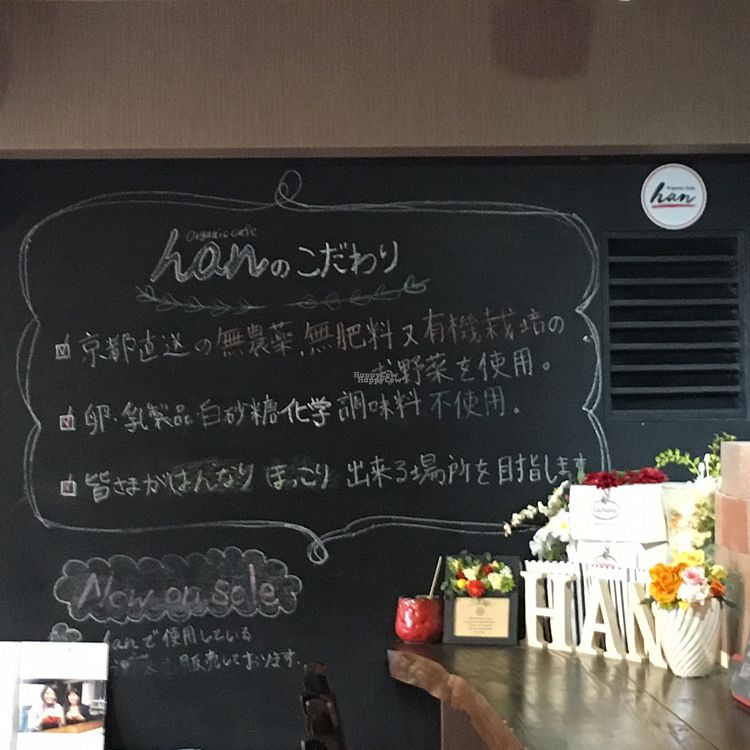 Organic Cafe
han
Organic cafe
hanのこだわり
京都直送の無農薬、無肥料又有機栽培の
お野菜を使用。
HappyCow
HappyCow
卵・乳製品・白砂糖・化学調味料不使用。
皆さまがはんなりほっこり出来る場所を目指します
Now on sale
hanで使用している
販売しております。
HAN